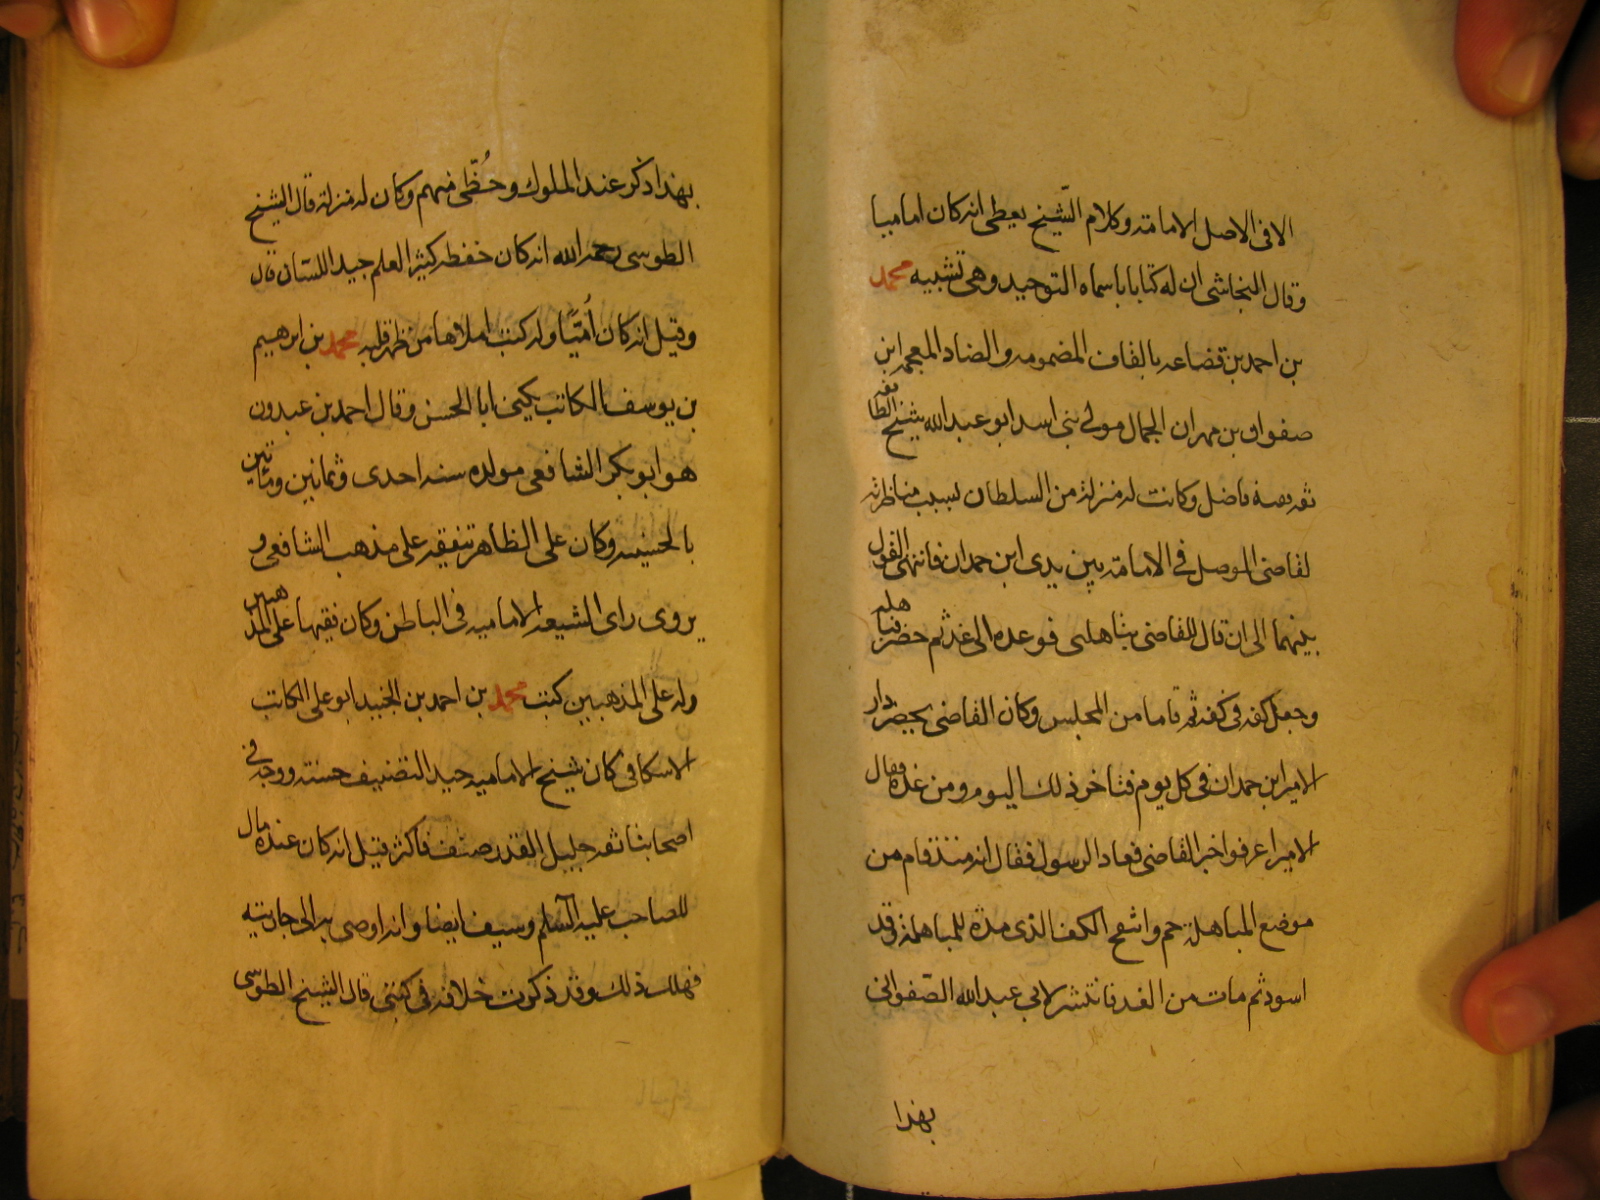 الا فى الاصل الامامة وكلام الشيخ يعطى انه كان اماميا
وقال النجاشى ان له كتابا باسماه التوحيد وهى تشبيه محمد
بن احمد بن قضاعه بالقاف المضمومه والضاد المعجمه ابن
صفوان بن مهران الجمال مولى بنى اسد ابو عبد الله شيخ الطائفه
ثقه فاضل وكانت له منزلة من السلطان بسبب مناظرته
لقاضى الموصل فى الامامة بين يدى ابن حمدان فانتهى القول
بينهما الى ان قال للقاضى تباهلنى فوعده الى غد ثم حضر فباهله
وجعل كفه فى كفه ثم قاما من المجلس وكان القاضى يحضر دار
الامير ابن حمدان فى كل يوم فتاخر ذلك اليوم ومن غده فقال
الامير اعرفوا خبر القاضى فعاد الرسول فقال انه منذ قام من
موضع المباهلة حم وانتفخ الكف الذى مده للمباهلة وقد
اسود ثم مات من الغد فانتشر لابى عبد الله الصفوانى
بهذا
بهذا ذكر عند الملوك وحُظّى منهم وكان له منزلة قال الشيخ
الطوسى رحمه الله انه كان حفظه كثير العلم جيد اللسان قال
وقيل انه كان اُمّيّا وله كتب املاها من ظهر قلبه محمد بن ابرهيم
بن يوسف الكاتب يكنى ابا الحسن وقال احمد بن عبدون
هو ابو بكر الشافعى مولده سنه احدى وثمانين ومائتين
بالحسينيه وكان على الظاهر يتفقه على مذهب الشافعى و
يروى راى الشيعه الاماميه فى الباطن وكان فقيها على المذهبين
وله على المذهبين كتب محمد بن احمد بن الجنيد ابو على الكاتب
الاسكافى كان شيخ الاماميه جيد التصنيف حسنه ووجه فى
اصحابنا ثقه جليل القدر صنف فاكثر قيل انه كان عنده مال
للصاحب عليه السلم وسيف ايضا وانه اوصى به الى جاريته
فهلك ذلك وقد ذكرت خلافه فى كتبى قال الشيخ الطوسى